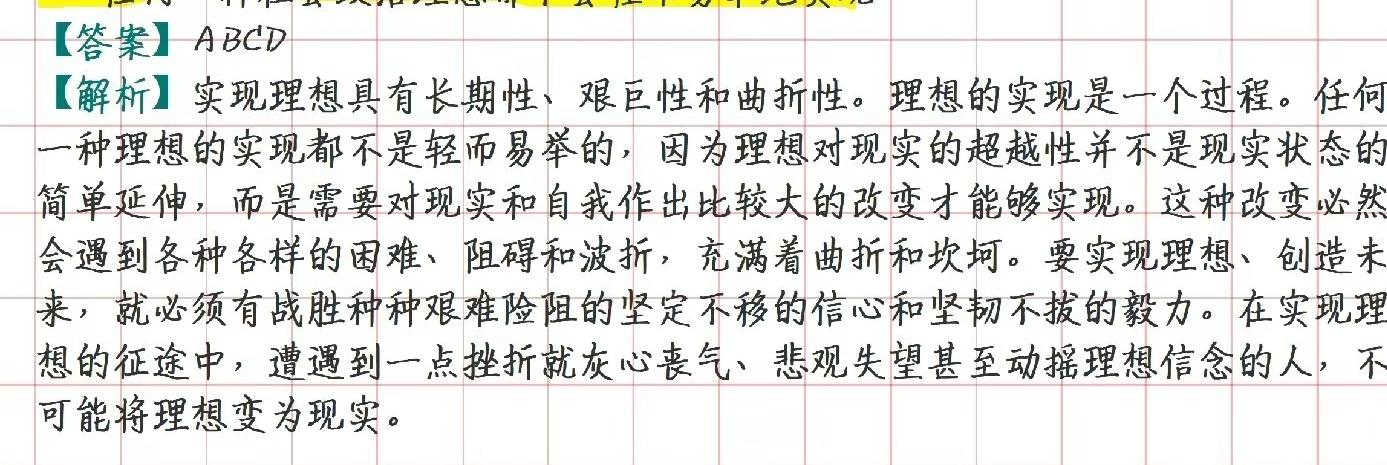 【答案】ABCD
【解析】实现理想具有长期性、艰巨性和曲折性。理想的实现是一个过程。任何
一种理想的实现都不是轻而易举的，因为理想对现实的超越性并不是现实状态的
简单延伸，而是需要对现实和自我作出比较大的改变才能够实现。这种改变必然
会遇到各种各样的困难、阻碍和波折，充满着曲折和坎坷。要实现理想、创造未
来，就必须有战胜种种艰难险阻的坚定不移的信心和坚韧不拔的毅力。在实现理
想的征途中，遭遇到一点挫折就灰心丧气、悲观失望甚至动摇理想信念的人，不
可能将理想变为现实。